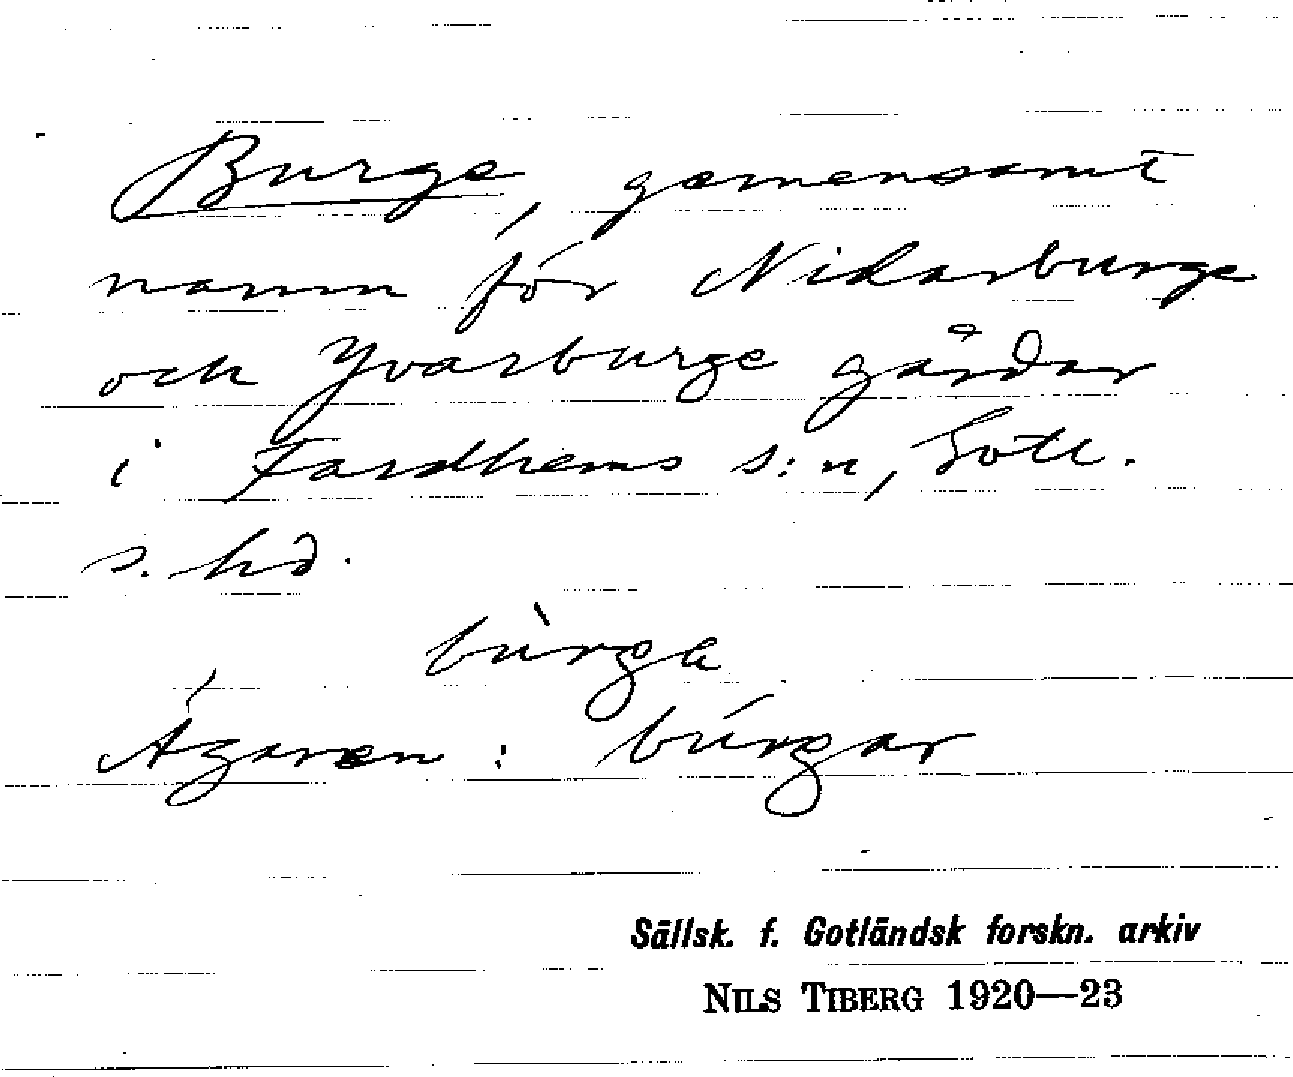 Burge, gemensamt
namn för Nidarburge
och Yvarburge gårdar
i Fardhems s:n, Gotl.
s. hd.
bùrge
Ägaren: búrgar
Sällsk. f. Gotländsk forskn. arkiv
NILS TIBERG 1920—23